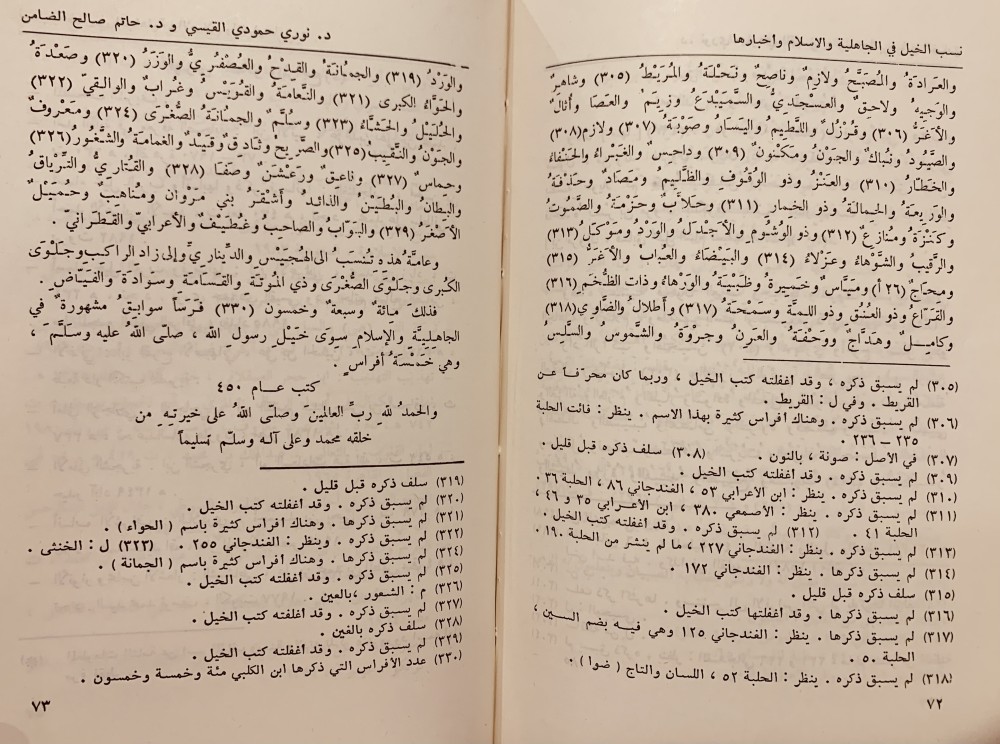 نسب الخيل في الجاهلية والاسلام وأخبارها
والعرادةُ والمُصَبَّحُ ولازمٌ وناصحٌ ونحْلةُ والمُرَيْطُ (٣٠٥) وشاهرٌ
والوجيهُ ولاحقٌ والعسجديُّ والسَّمَيْدَعُ وزِيَمُ والعصا وأُثالٌ
والأغَرُّ (٣٠٦) وقُرْزُلٌ والطَّيمُ واليسارُ وصَوْبَةُ (٣٠٧) ولازم(٣٠٨)
الصَّيُودُ ونُباكٌ والجَوْنُ ومكنونٌ (٣٠٩) وداحِسٌ والغَبْراءُ والحَنْفاءُ
والخطّارُ (٣١٠) والعنزُ وذو الوُقُوفِ والظَّليمُ ومَصَادٌ وحذفةُ
والوَرِيعةُ والجمالةُ وذو الخِمارِ (٣١١) وحَلاَّبٌ وحَزْمةُ والصَّمُوتُ
وكَنزةُ ومُنازعٌ (٣١٢) وذو الوُشُومِ والأجدلُ والوَرْدُ ومَوْكلٌ (٣١٣)
والرَّقيبُ والشَّوْهاءُ وعَزْلاءُ (٣١٤) والبَيْضاءُ والعُبابُ والأغَرُّ (٣١٥)
ومِحاجٌ (٢٦ أ) وميّاسٌ وخَميرةُ وظَبْيةُ والوَرْهاءُ وذات الظُّخَمِ (٣١٦)
والقَرّاعُ وذو العُنُقِ وذو اللمَّةِ وسَمْحَةُ (٣١٧) وأطلالُ والضّاوي(٣١٨)
وكاملٌ وهَدّاجٌ ووَحْفَةُ والعَرِنُ وجِروةُ والشَّمُوسُ والسَّلِسُ
(٣٠٥) لم يسبق ذكره ، وقد اغفلته كتب الخيل ، وربما كان محرّفاً عن
القريط . وفي ل : القريط .
(٣٠٦) لم يسبق ذكره . وهناك أفراس كثيرة بهذا الاسم . ينظر : فائت الحلبة
٢٣٥ – ٢٣٦ .
(٣٠٧) في الاصل : صونة ، بالنون . (٣٠٨) سلف ذكره قبل قليل .
(٣٠٩) لم يسبق ذكره . وقد اغفلته كتب الخيل .
(٣١٠) لم يسبق ذكره . ينظر : ابن الاعرابي ٥٣ ، الفندجاني ٨٦ ، الحلبة ٣٦ .
(٣١١) لم يسبق ذكره . ينظر : الاصمعي ٣٨٠ ، ابن الاعرابي ٣٥ و ٤٦ ،
الحلبة ٤١ . (٣١٢) لم يسبق ذكره . وقد اغفلته كتب الخيل .
(٣١٣) لم يسبق ذكره . ينظر : الفندجاني ٢٢٧ ، ما لم ينشر من الحلبة ١٩٠ .
(٣١٤) لم يسبق ذكرها . ينظر : الفندجاني ١٧٢ .
(٣١٥) سلف ذكره قبل قليل .
(٣١٦) لم يسبق ذكرها . وقد اغفلتها كتب الخيل .
(٣١٧) لم يسبق ذكرها . ينظر : الفندجاني ١٢٥ وهي فيه بضم السين ،
الحلبة ٥٠ .
(٣١٨) لم يسبق ذكره . ينظر : الحلبة ٥٢ ، اللسان والتاج ( ضوا ) .
٧٢
د. نوري حمودي القيسي و د. حاتم صالح الضامن
والوَرْدُ (٣١٩) والجُمانةُ والقدحُ والعُصْفُريُّ والوَزَرُ (٣٢٠) وصَعْدَةُ
والحَوّاءُ الكبرى (٣٢١) والنَّعامةُ والقُوَيْسُ وغُرابٌ والوالقيّ (٣٢٢)
والحُلَيْلُ والحَشّاءُ (٣٢٣) وسُلَّمٌ والجمانةُ الصُّغْرى (٣٢٤) ومَعْروفٌ
والجَوْنُ والنَّقيبُ(٣٢٥)والصَّريحُ وثادِقٌ وقَيْدٌ والغمامةُ والشَّغُورُ(٣٢٦)
وحماسٌ (٣٢٧) وناعِقٌ ورَعْشَنٌ وصَفَا (٣٢٨) والقُتاريُّ والتِّرْياقُ
والبِطانُ والبُطَيْنُ والذائدُ وأشقَرُ بني مَرْوانَ ومُناهبٌ وحُمَيْلٌ
الأصْغَرُ (٣٢٩) والبوّابُ والصاحبُ وغُطَيْفٌ والأعرابيّ والقَطَرانيّ .
وعامةُ هذه تُنسَبُ الى الهُجَيْسِ والدِّيناريّ وإلى زاد الراكبِ وجَلْوَى
الكُبرى وجَلْوَى الصُّغْرى وذي المُوتَةِ والقَسَامةِ وسَوادَةَ والفَيّاضِ .
فذلك مائةٌ وسبعةٌ وخمسون (٣٣٠) فَرَساً سوابقُ مشهورةٌ في
الجاهليّةِ والإسلامِ سِوَى خَيْلِ رسولِ الله ، صلّى اللهُ عليه وسلَّمَ ،
وهي خَمْسَةُ أفراسٍ .
كتب عام ٤٥٠
والحمدُ للهِ ربِّ العالمينَ وصلّى اللهُ على خيرتِهِ من
خلقه محمد وعلى آله وسلّم تسليماً
(٣١٩) سلف ذكره قبل قليل .
(٣٢٠) لم يسبق ذكره . وقد اغفلته كتب الخيل .
(٣٢١) لم يسبق ذكرها . وهناك افراس كثيرة باسم ( الحواء ) .
(٣٢٢) لم يسبق ذكره . وينظر : الفندجاني ٢٥٥ . (٣٢٣) ل : الخنثى .
(٣٢٤) لم يسبق ذكرها . وهناك افراس كثيرة باسم ( الجمانة ) .
(٣٢٥) لم يسبق ذكره . وقد اغفلته كتب الخيل .
(٣٢٦) م : الشعور ،بالعين .
(٣٢٧) لم يسبق ذكره . وقد اغفلته كتب الخيل .
(٣٢٨) سلف ذكره بالغين .
(٣٢٩) لم يسبق ذكره . وقد اغفلته كتب الخيل .
(٣٣٠) عدد الأفراس التي ذكرها ابن الكلبي مئة وخمسة وخمسون .
٧٣